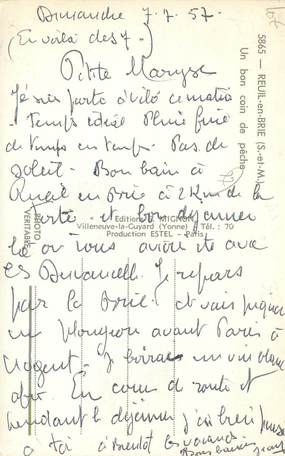 Dimanche 7.7.57.
(En voilà des 7-)
Petite Maryse
Je suis partie à vélo ce matin
- Temps idéal Pluie fine
de temps en temps. Pas de
soleil - Bon bain à
Reuil en Brie à 2 Km de la
Ferté et bon déjeuner
là où nous avions été avec
les . Je repars
par la Brie. et vais piquer
un plongeon avant Paris à
Nogent - Je boirai un vin blanc
. En cours de route et
pendant le déjeuner j'ai bien pensé
à toi à bientôt les vacances
Bons baisers
5865 — REUIL-en-BRIE (S.-et-M.)
Un bon coin de pêche
PHOTO
VERITABLE
Editions MIGNON
Villeneuve-la-Guyard (Yonne) Tél. : 70
Production ESTEL - Paris